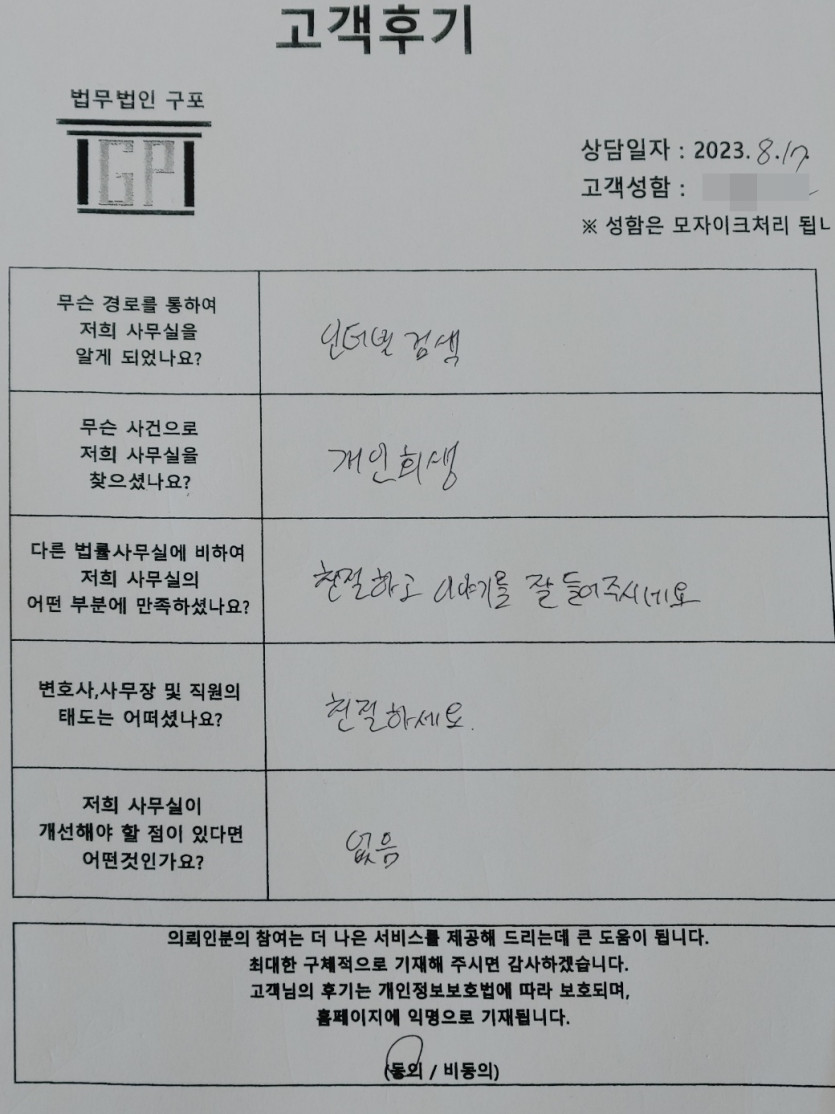 고객후기
법무법인 구포
GP
상담일자 : 2023. 8. 17.
고객성함 :
※ 성함은 모자이크처리 됩ㄴ
무슨 경로를 통하여
저희 사무실을
알게 되었나요?
인터넷 검색
무슨 사건으로
저희 사무실을
찾으셨나요?
개인회생
다른 법률사무실에 비하여
저희 사무실의
어떤 부분에 만족하셨나요?
친절하고 이야기를 잘 들어주시네요
변호사,사무장 및 직원의
태도는 어떠셨나요?
친절하세요.
저희 사무실이
개선해야 할 점이 있다면
어떤것인가요?
없음
의뢰인분의 참여는 더 나은 서비스를 제공해 드리는데 큰 도움이 됩니다.
최대한 구체적으로 기재해 주시면 감사하겠습니다.
고객님의 후기는 개인정보보호법에 따라 보호되며,
홈페이지에 익명으로 기재됩니다.
(동의 / 비동의)